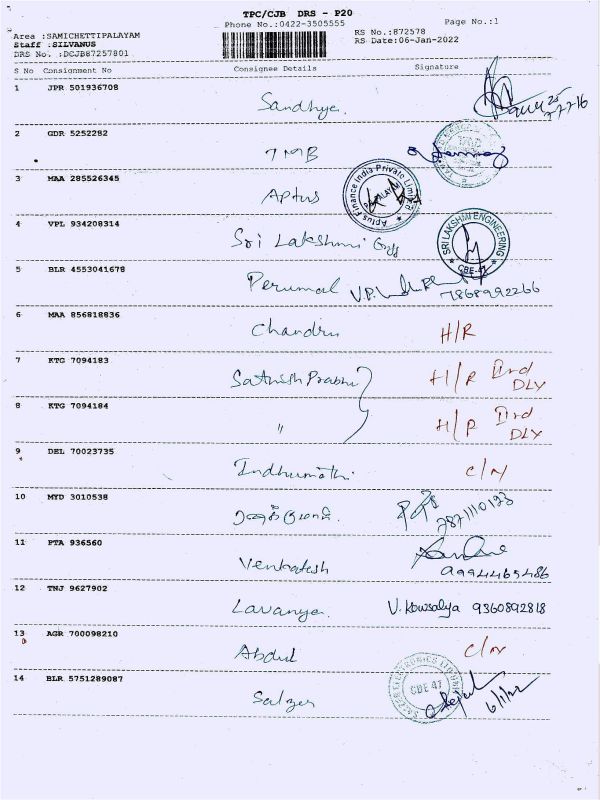 TPC/CJB DRS - P20
Phone No.:0422-3505555
Page No.:1
Area :SAMICHETTIPALAYAM
Staff :SILVANUS
DRS No. :DCJB87257801
RS No.:872578
RS Date:06-Jan-2022
S No Consignment No Consignee Details Signature
1 JPR 501936708 Sandhya
2 GDR 5252282 TMB
3 MAA 285526345 Aptus
Aptus Finance India Private Limited
4 VPL 934208314 Sri Lakshmi Engg
SRI LAKSHMI ENGINEERING
CBE-47
5 BLR 4553041678 Perumal
7868992266
6 MAA 856818836 Chandru H/R
7 KTG 7094183 Sathish Prabhu H/R IIrd DLY
8 KTG 7094184 " H/R IIrd DLY
9 DEL 70023735 Indhumathi C/N
10 MYD 3010538
7871110123
11 PTA 936560 Venkatesh
9994465486
12 TNJ 9627902 Lavanya V. Kowsalya 9360892818
13 AGR 700098210 Abdul C/N
14 BLR 5751289087 Salzer
CBE 47
6/1/22